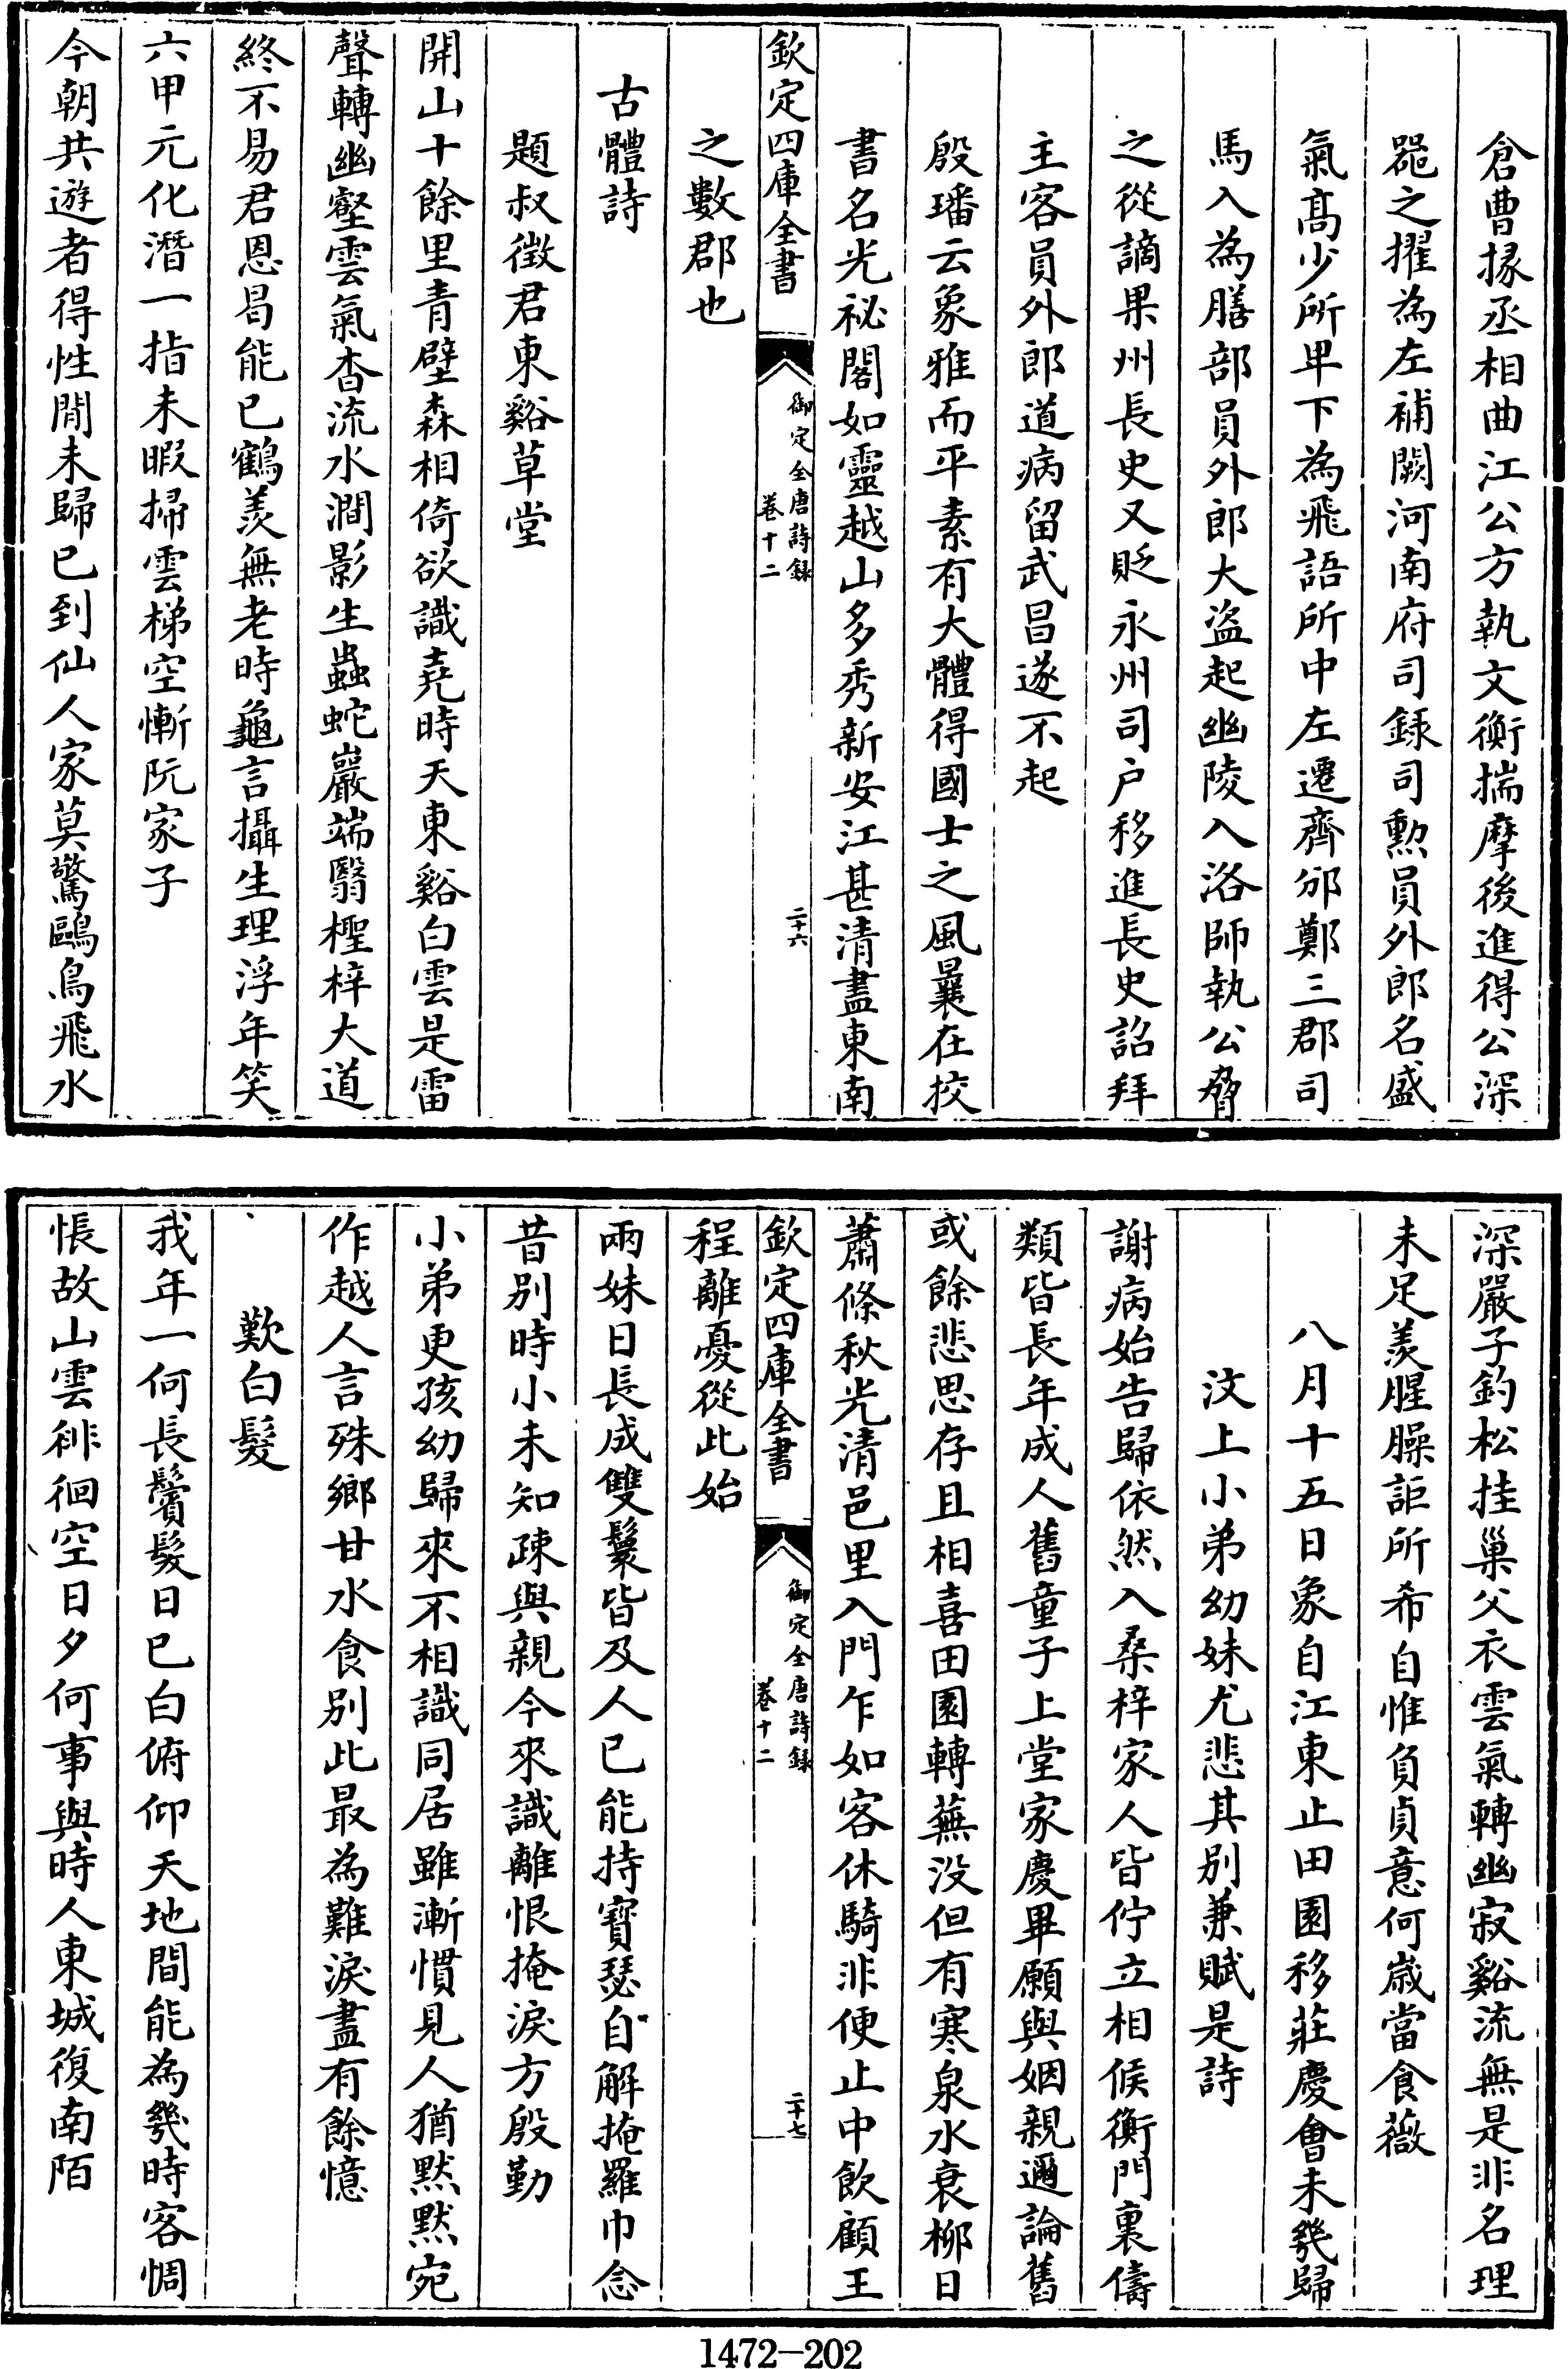 倉曹掾丞相曲江公方執文衡揣摩後進得公深
噐之擢為左補闕河南府司録司勲員外郎名盛
氣髙少所卑下為飛語所中左遷齊邠鄭三郡司
馬入為膳部員外郎大盗起幽陵入洛師執公脅
之從謫果州長史又貶永州司户移進長史詔拜
主客員外郎道病留武昌遂不起
殷璠云象雅而平素有大體得國士之風曩在挍
書名光祕閣如靈越山多秀新安江甚清盡東南
欽定四庫全書
御定全唐詩録
卷十二
二十六
之數郡也
古體詩
題叔徴君東谿草堂
開山十餘里青壁森相倚欲識堯時天東谿白雲是雷
聲轉幽壑雲氣杳流水澗影生蟲蛇巖端翳檉梓大道
終不易君恩曷能已鶴羨無老時龜言攝生理浮年笑
六甲元化潛一指未暇掃雲梯空慚阮家子
今朝共遊者得性閒未歸已到仙人家莫驚鷗鳥飛水
深嚴子釣松挂巢父衣雲氣轉幽寂谿流無是非名理
未足羨腥臊詎所希自惟負貞意何嵗當食薇
八月十五日象自江東止田園移莊慶㑹未幾歸
汶上小弟幼妹尤悲其别兼賦是詩
謝病始告歸依然入桑梓家人皆佇立相候衡門裏儔
類皆長年成人舊童子上堂家慶畢願與姻親邇論舊
或餘悲思存且相喜田園轉蕪没但有寒泉水衰栁日
蕭條秋光清邑里入門乍如客休騎非便止中飲顧王
欽定四庫全書
御定全唐詩録
卷十二
二十七
程離憂從此始
兩妹日長成雙鬟皆及人已能持寶瑟自解掩羅巾念
昔别時小未知疎與親今來識離恨掩淚方殷勤
小弟更孩幼歸來不相識同居雖漸慣見人猶黙黙宛
作越人言殊鄉甘水食别此最為難淚盡有餘憶
歎白髮
我年一何長鬢髮日已白俯仰天地間能為幾時客惆
悵故山雲徘徊空日夕何事與時人東城復南陌
1472-202